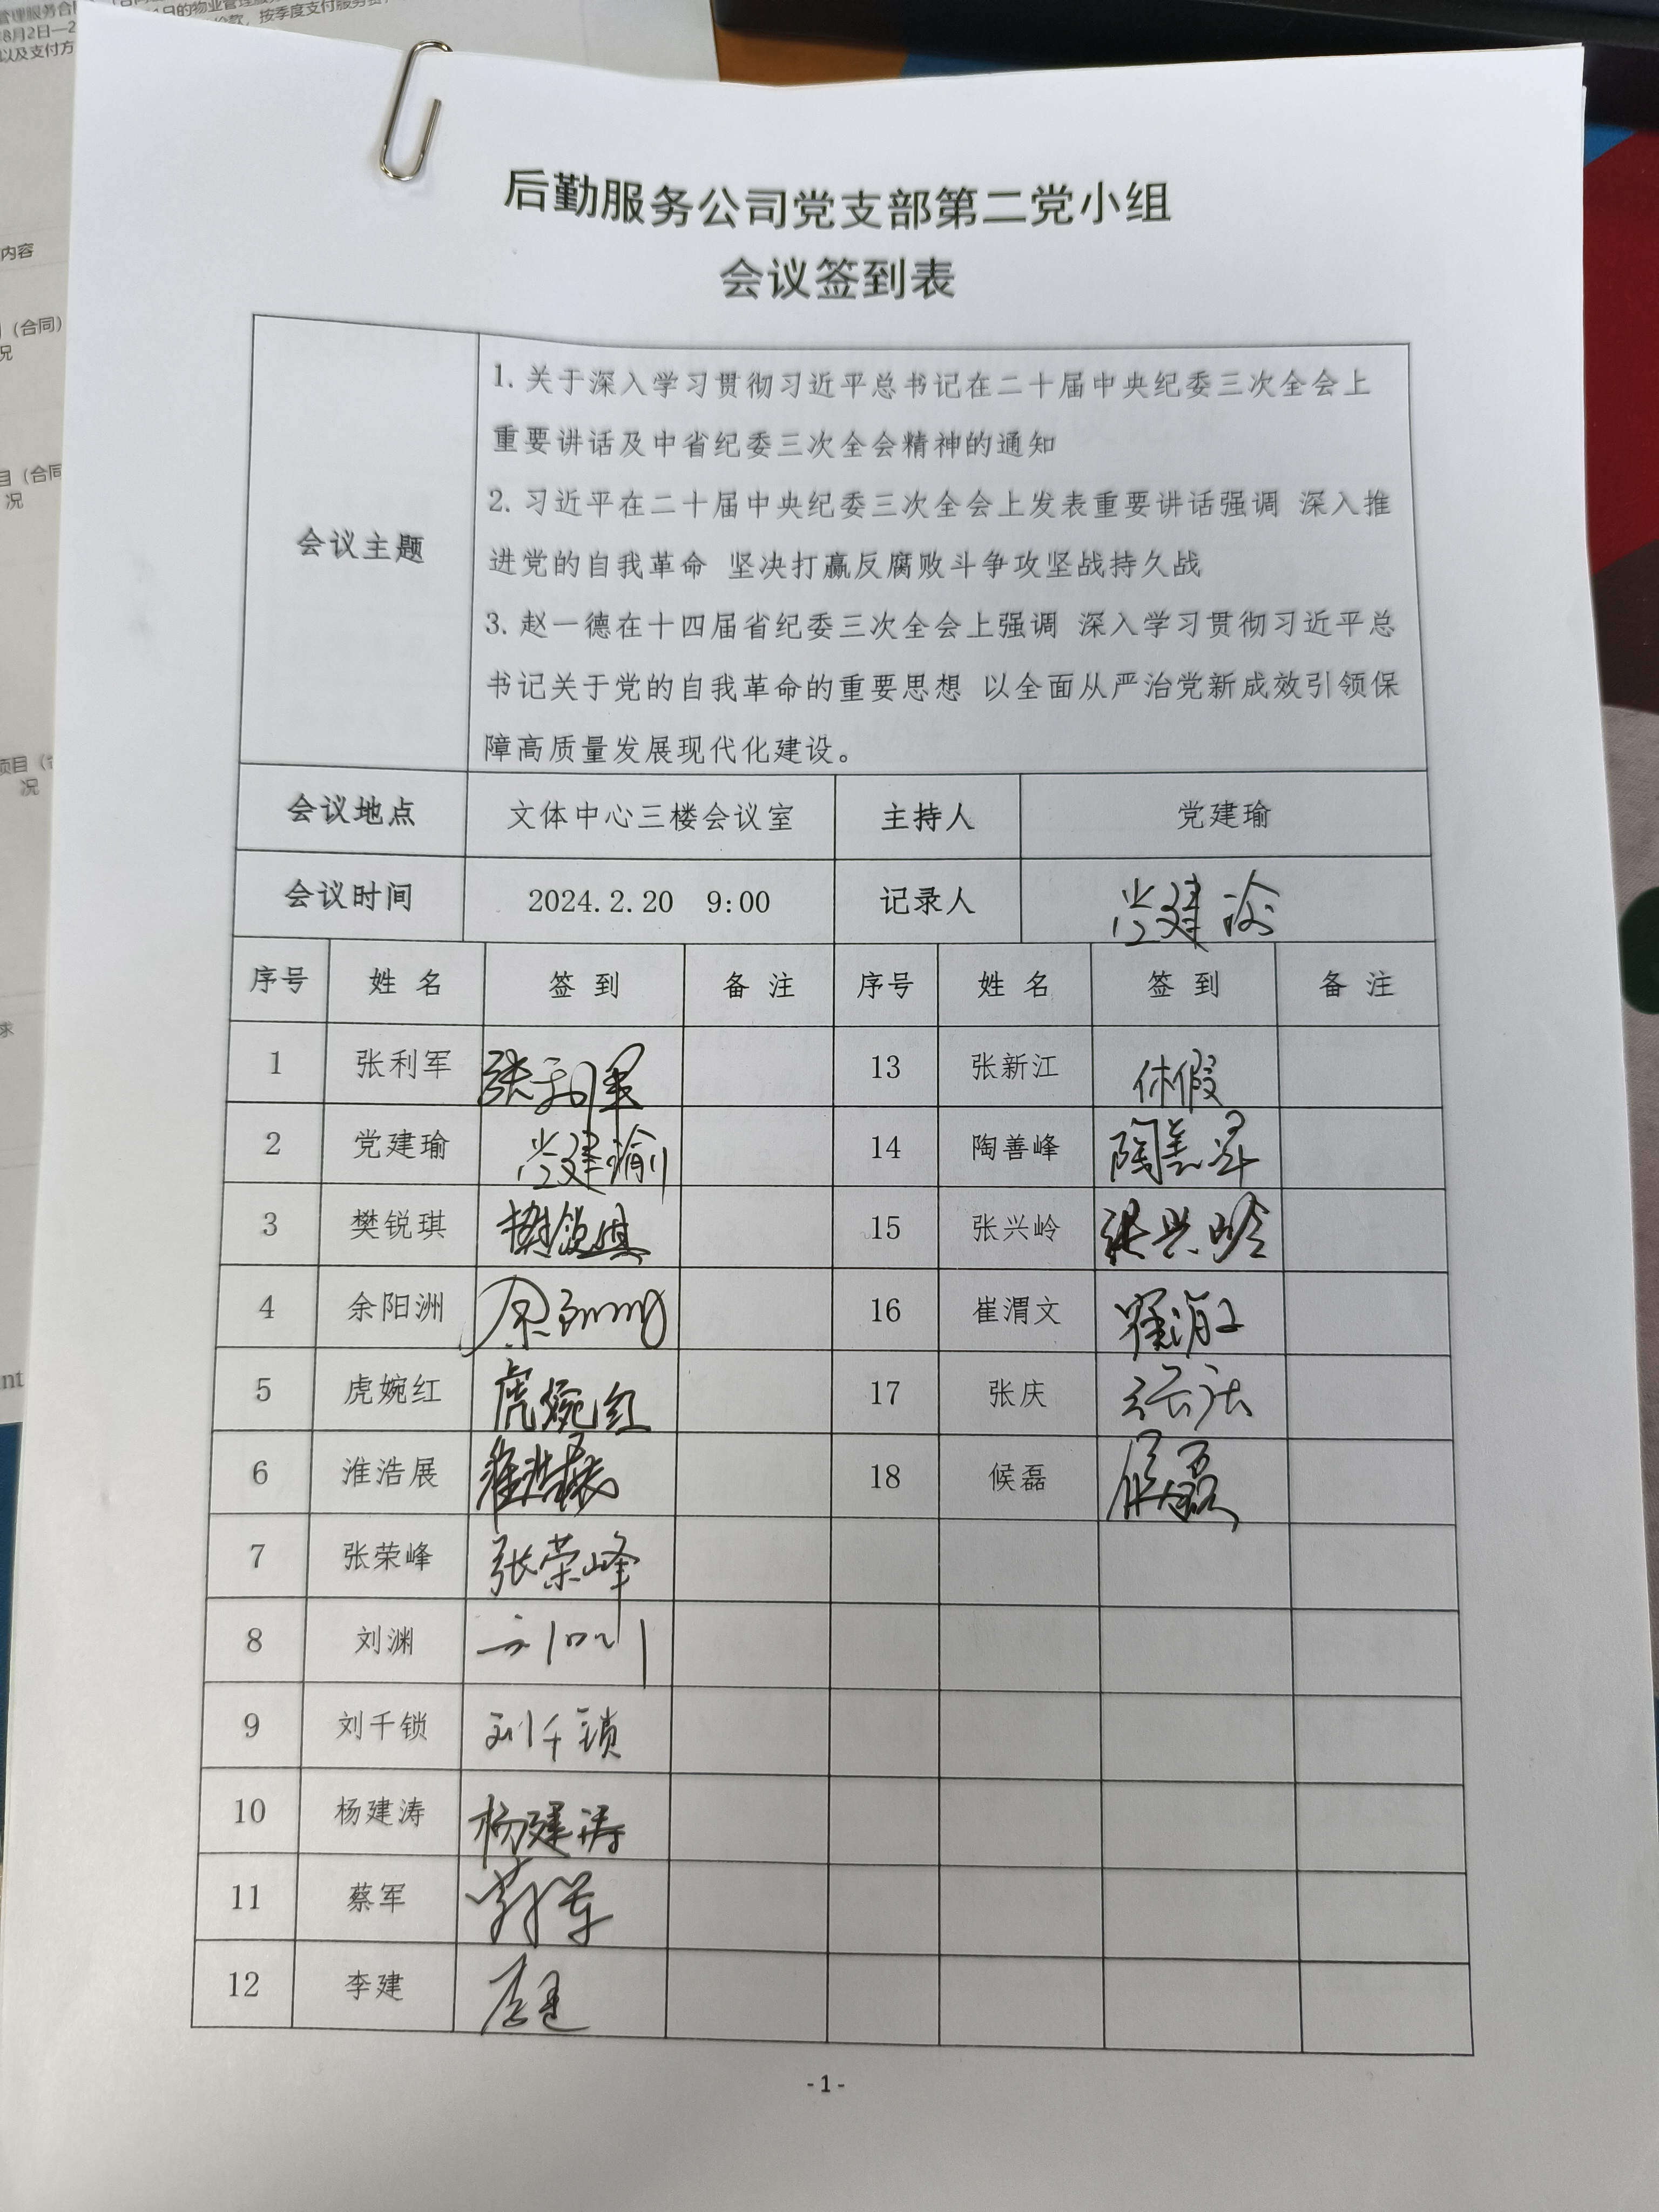 后勤服务公司党支部第二党小组
会议签到表
会议主题
1. 关于深入学习贯彻习近平总书记在二十届中央纪委三次全会上
重要讲话及中省纪委三次全会精神的通知
2. 习近平在二十届中央纪委三次全会上发表重要讲话强调 深入推
进党的自我革命 坚决打赢反腐败斗争攻坚战持久战
3. 赵一德在十四届省纪委三次全会上强调 深入学习贯彻习近平总
书记关于党的自我革命的重要思想 以全面从严治党新成效引领保
障高质量发展现代化建设。
会议地点 文体中心三楼会议室 主持人 党建瑜
会议时间 2024.2.20 9:00 记录人 党建瑜
序号 姓名 签到 备注 序号 姓名 签到 备注
1 张利军 张利军 13 张新江 休假
2 党建瑜 党建瑜 14 陶善峰 陶善峰
3 樊锐琪 樊锐琪 15 张兴岭 张兴岭
4 余阳洲 16 崔渭文 崔渭文
5 虎婉红 虎婉红 17 张庆 张庆
6 淮浩展 淮浩展 18 候磊 侯磊
7 张荣峰 张荣峰
8 刘渊 刘渊
9 刘千锁 刘千锁
10 杨建涛 杨建涛
11 蔡军 蔡军
12 李建 李建
- 1 -
内容
（合同）
况
目（合同
况
项目（合
况
求
nt
管理服务合同
8月2日—2
以及支付方
日的物业管理服
款，按季度支付服务费，